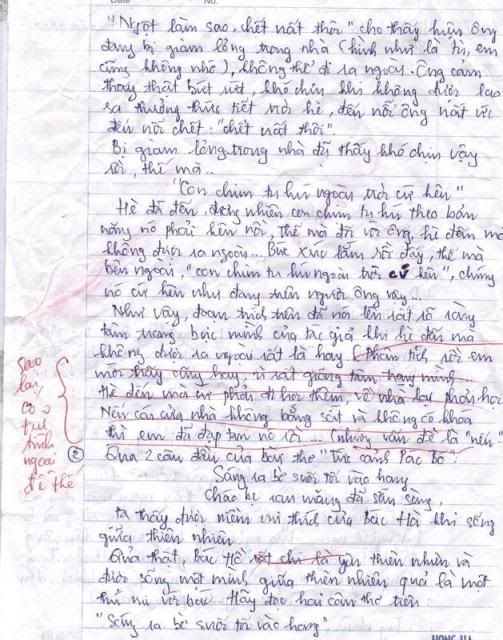 "Ngột làm sao, chết uất thôi" cho thấy hiện ông
đang bị giam lỏng trong nhà (hình như là tù, em
cũng không nhớ), không thể đi ra ngoài. Ông cảm
thấy thật bứt rứt, khó chịu khi không được lao
ra thưởng thức tiết trời hè, đến nỗi ông uất ức
đến nỗi chết: "chết uất thôi".
Bị giam lỏng trong nhà đã thấy khó chịu vậy
rồi, thế mà..
"Con chim tu hú ngoài trời cứ kêu"
Hè đã đến, đương nhiên con chim tu hú theo bản
năng nó phải kêu rồi, thế mà đối với ông, hè đến mà
không được ra ngoài... Bức xúc lắm rồi đấy, thế mà
bên ngoài, "con chim tu hú ngoài trời cứ kêu", chúng
nó cứ kêu như đang trêu ngươi ông vậy...
Như vậy, đoạn trích trên đã nói lên rất rõ ràng
tâm trạng bực mình của tác giả khi hè đến mà
không được ra ngoài rất là hay (Phân tích rồi em
mới thấy cũng hay) vì rất giống tâm trạng mình...
Hè đến mà cứ phải đi học thêm, về nhà lại phải học
Nếu cái cửa nhà không bằng sắt và không có khóa
thì em đã đạp tan nó rồi... (nhưng vấn đề là "nếu"
sao
lại
có
tư
tình
ngoài
đề thế
② Qua 2 câu đầu của bài thơ "Tức cảnh Pác Bó"
Sáng ra bờ suối tối vào hang
Cháo bẹ rau măng đã sẵn sàng.
ta thấy được niềm vui thích của Bác Hồ khi sống
giữa thiên nhiên
Quả thật, bác Hồ rất yêu thiên nhiên và
được sống một mình giữa thiên nhiên quả là một
thú vui với bác... Hãy đọc hai câu thơ trên:
"Sáng ra bờ suối tối vào hang"